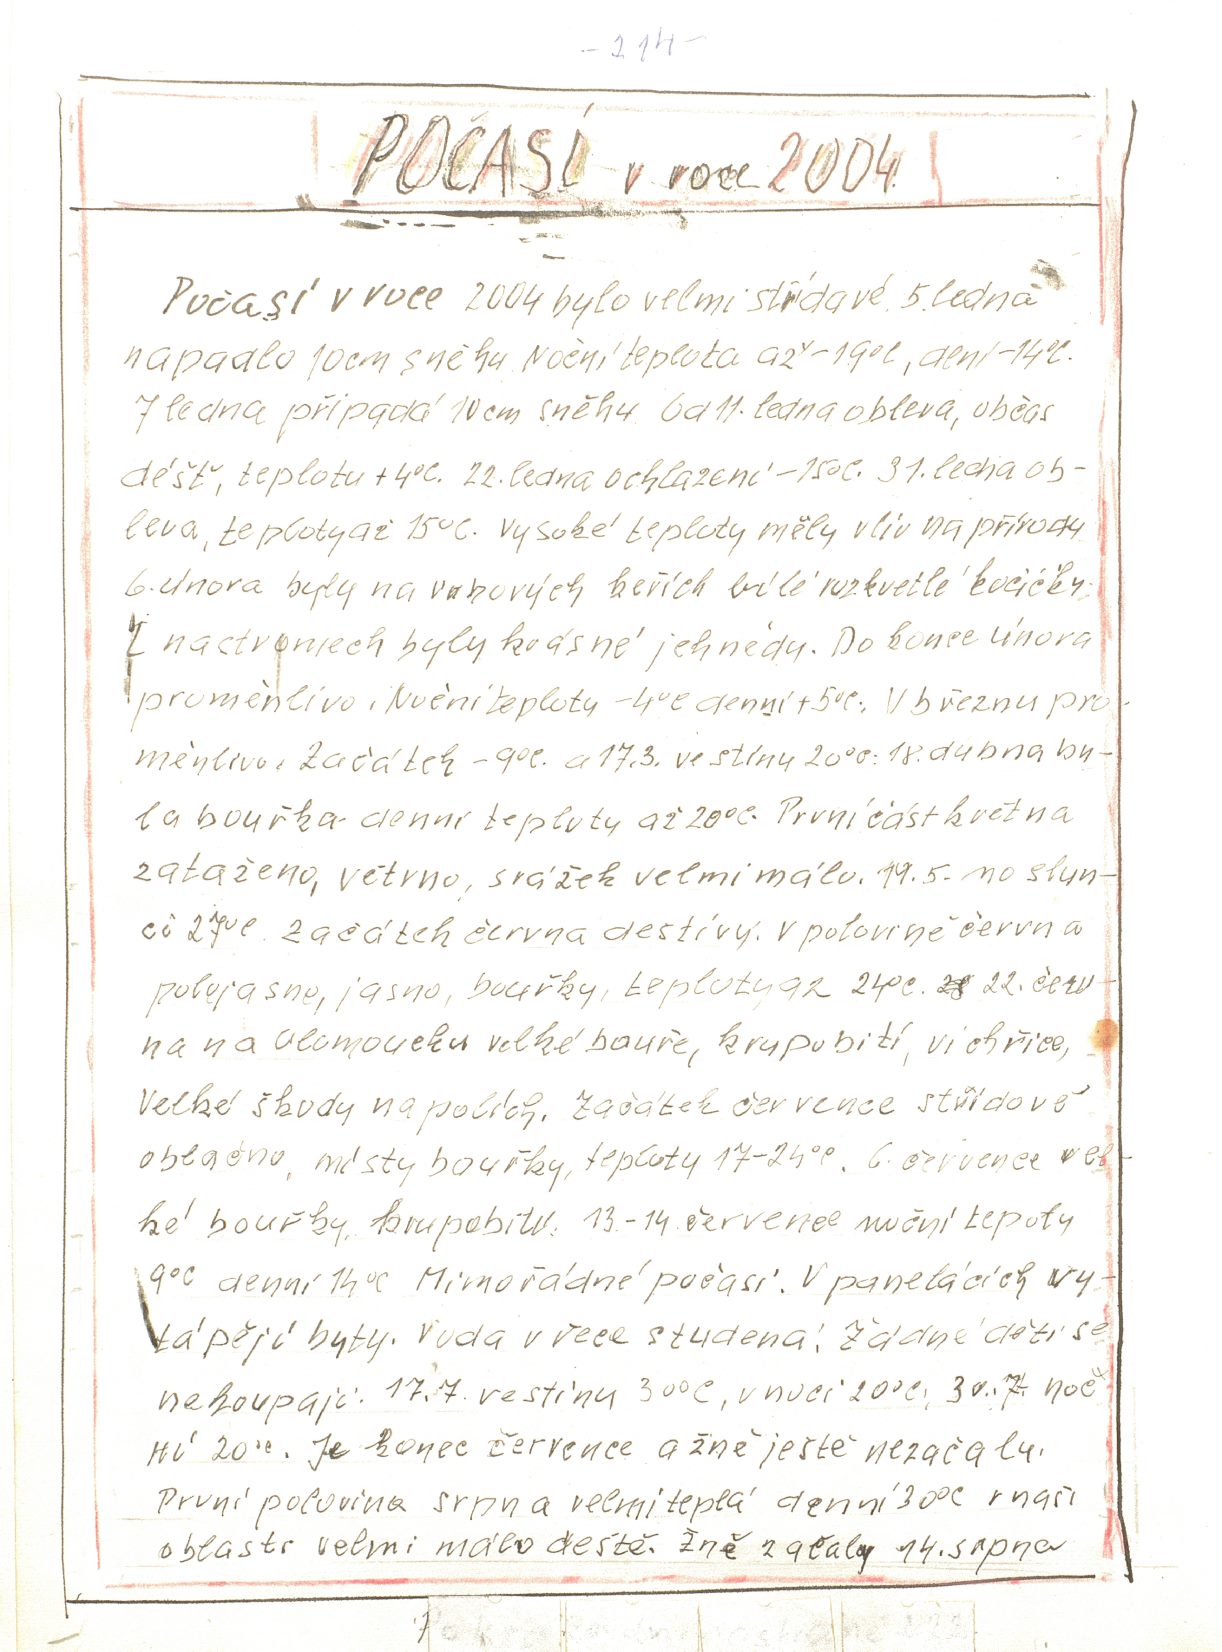 - 214 -
POČASÍ v roce 2004
Počasí v roce 2004 bylo velmi střídavé. 5. ledna
napadlo 10cm sněhu Noční teplota až -19°C, dení -14°C.
7 ledna připadá 10cm sněhu Od 11. ledna obleva, občas
déšť, teplotu +4°C. 22. ledna ochlazení -15°C. 31. ledna ob-
leva, teploty až 15°C. Vysoké teploty měly vliv na přírodu
6. února byly na vrbových keřích bílé rozkvetlé kočičky.
I na stromech byly krásné jehnědy. Do konce února
proměnlivo. Noční teploty -4°C denní +5°C. V březnu pro-
měnlivo. Začátek -9°C. a 17.3. ve stínu 20°C. 18. dubna by-
la bouřka denní teploty až 20°C. První část května
zataženo, větrno, srážek velmi málo. 19. 5. na slun-
ci 27°C. Začátek června deštivý. V polovině června
polojasno, jasno, bouřky, teploty až 24°C. 22. červ-
na na Olomoucku velké bouře, krupobití, vichřice,
Velké škody na polích. Začátek července střídavě
oblačno, místy bouřky, teploty 17-24°C. 6. července vel-
ké bouřky, krupobití. 13.-14 července noční tepoty
9°C denní 14°C Mimořádné počasí. V panelácích vy-
tápějí byty. Voda v řece studená. Žádné děti se
nekoupají. 17.7. ve stínu 30°C, v noci 20°C, 30.7. noč
ní 20°C. Je konec července a žně ještě nezačaly.
První polovina srpna velmi teplá denní 30°C v naší
oblasti velmi málo deště. Žně začaly 14. srpna